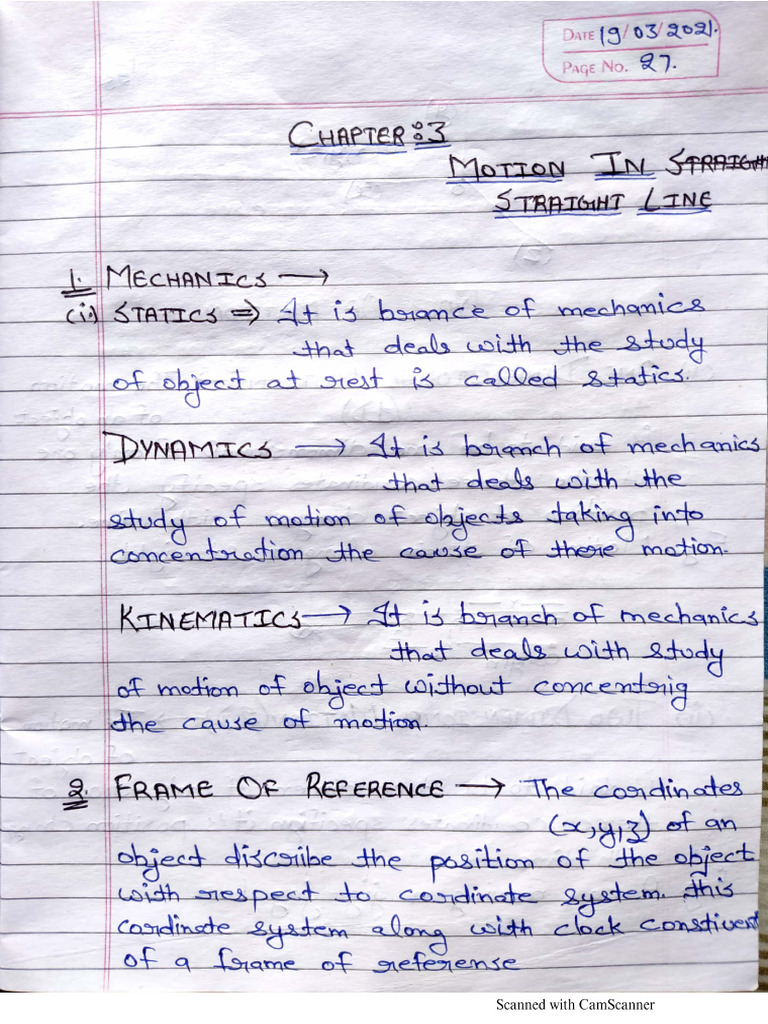 DATE 19/03/2021.
PAGE NO. 27.
CHAPTER:3
MOTION IN STRAIGH
STRAIGHT LINE
1. MECHANICS →
(i) STATICS ⇒ It is brance of mechanics
that deals with the study
of object at rest is called statics.
DYNAMICS → It is branch of mechanics
that deals with the
study of motion of objects taking into
concentration the cause of there motion.
KINEMATICS → It is branch of mechanics
that deals with study
of motion of object without concentrig
the cause of motion.
2. FRAME OF REFERENCE → The coordinates
(x,y,z) of an
object discribe the position of the object
with respect to cordinate system. this
cordinate system along with clock constivent
of a frame of referense
Scanned with CamScanner